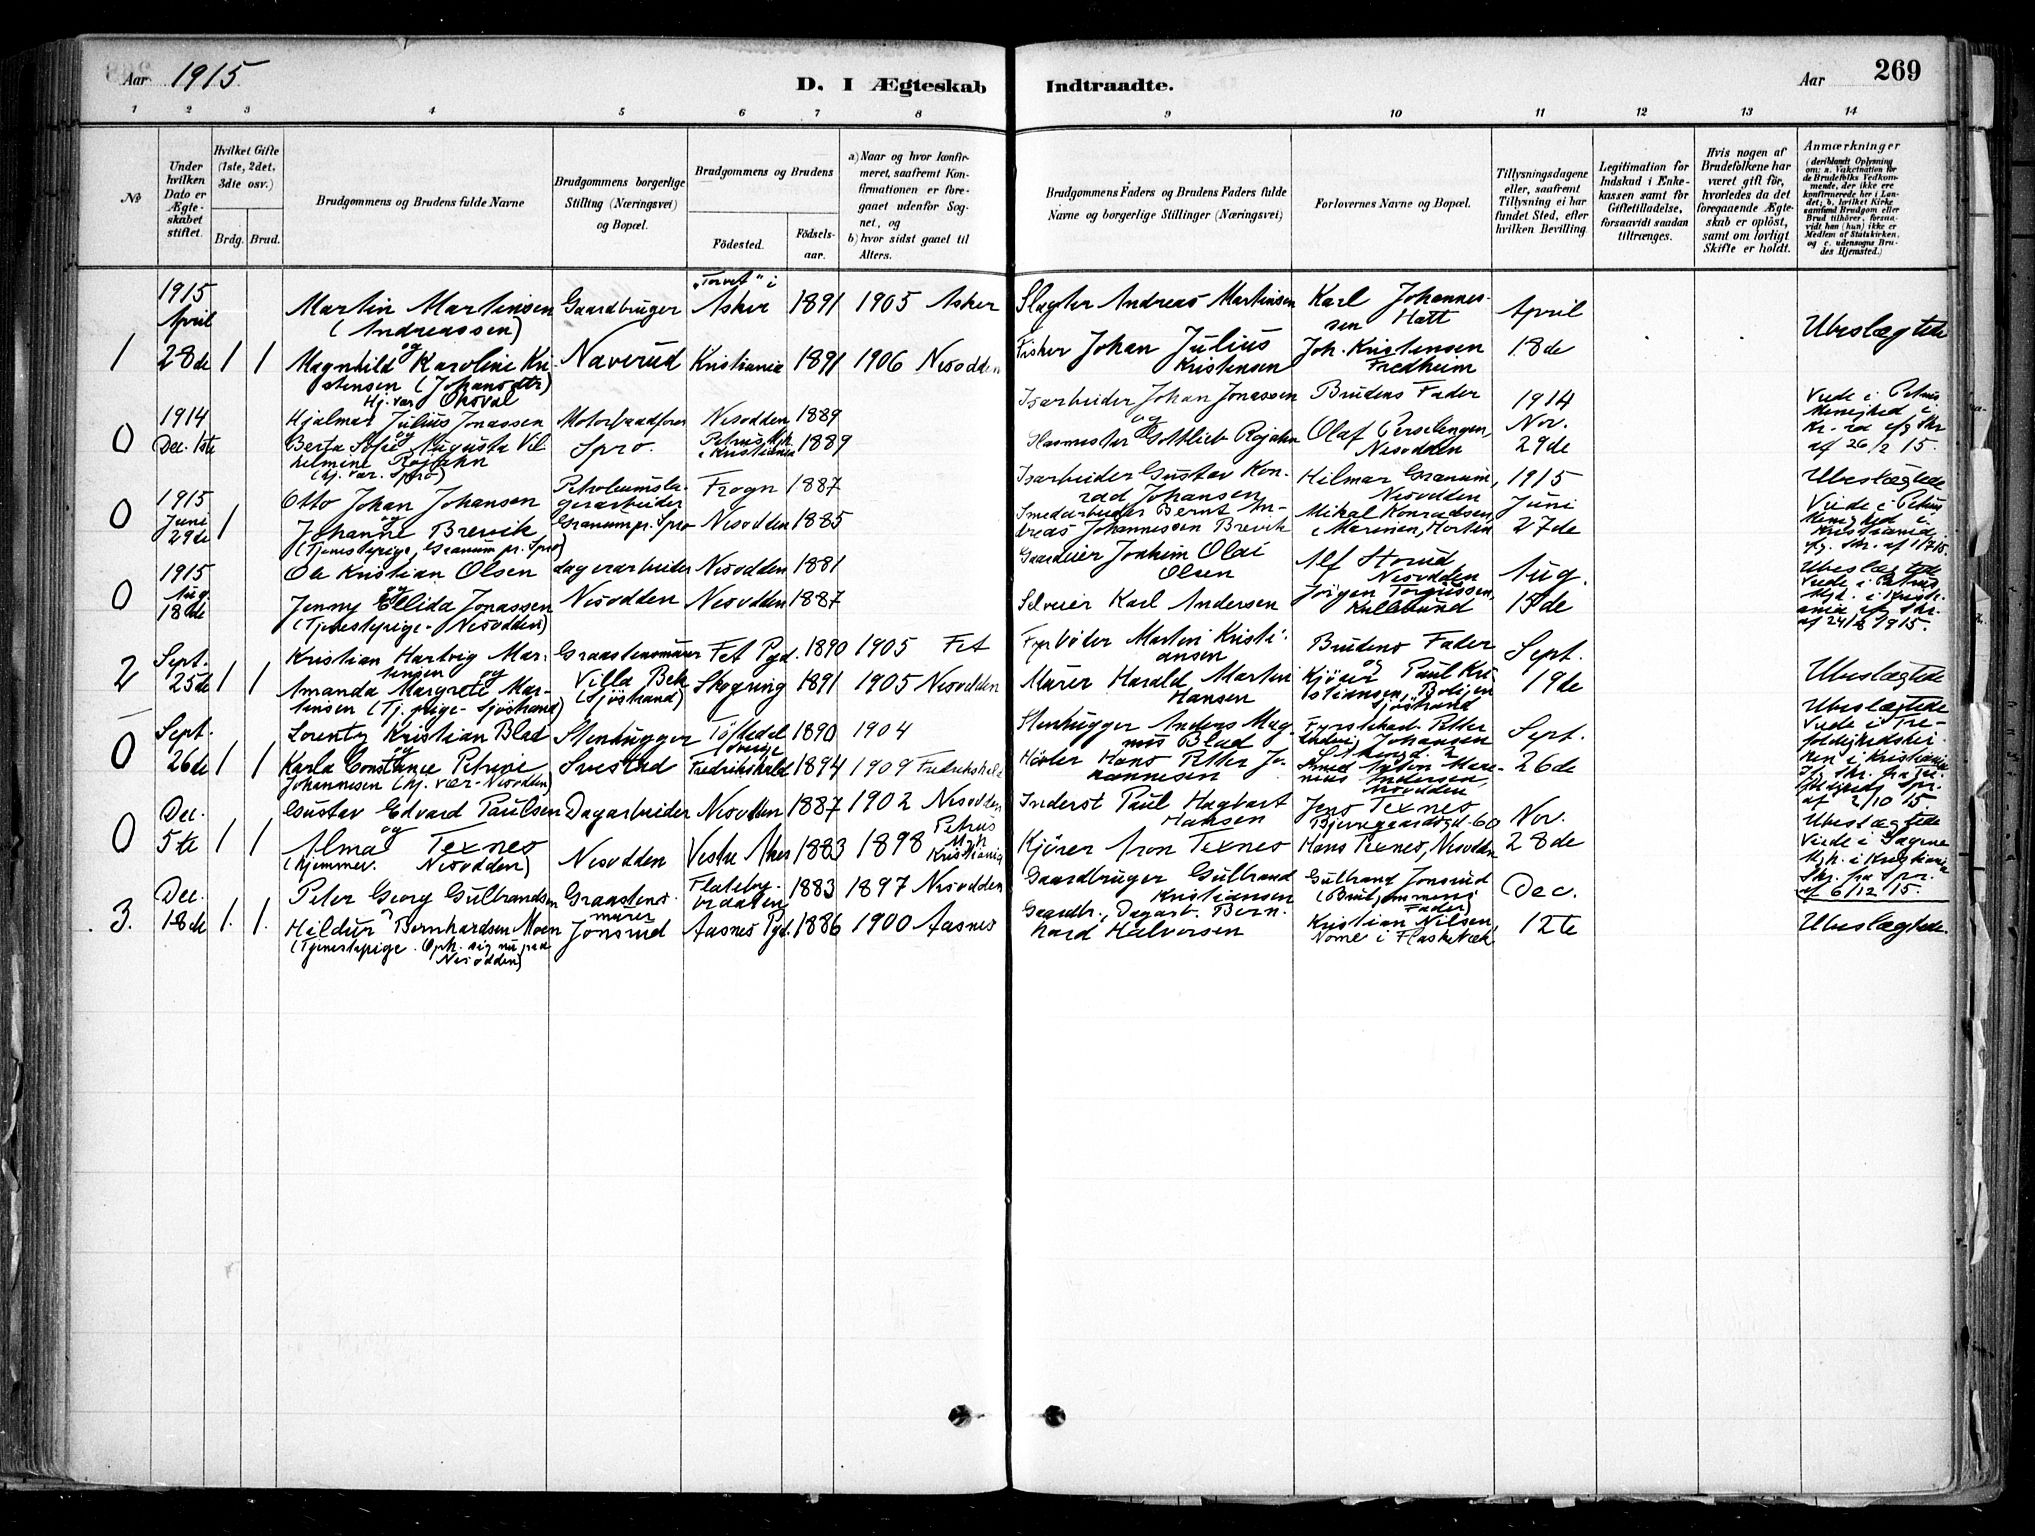 Aar 1915
D. I Ægteskab Indtraadte.
Aar
269
1 2 3 4 5 6 7 8 9 10 11 12 13 14
№
Under hvilken Dato er Ægteskabet stiftet.
Hvilket Gifte (1ste, 2det, 3die osv.)
Brdg. Brud.
Brudgommens og Brudens fulde Navne
Brudgommens borgerlige Stilling (Næringsvei) og Bopæl.
Brudgommens og Brudens
Fødested. Fødselsaar.
a) Naar og hvor konfirmeret, saafremt Konfirmationen er foregaaet udenfor Sognet, og
b) hvor sidst gaaet til Alters.
Brudgommens Faders og Brudens Faders fulde Navne og borgerlige Stillinger (Næringsvei)
Forlovernes Navne og Bopæl.
Tillysningsdagene eller, saafremt Tillysning ei har fundet Sted, efter hvilken Bevilling
Legitimation for Indskud i Enkekassen samt for Giftetilladelse, forsaavidt saadan tiltrænges.
Hvis nogen af Brudefolkene har været gift før, hvorledes da det foregaaende Ægteskab er opløst, samt om lovligt Skifte er holdt.
Anmærkninger (deriblandt Oplysning om: a. Vakcination for de Brudefolks Vedkommende, der ikke ere konfirmerede her i Landet; b. hvilket Kirkesamfund Brudgom eller Brud tilhører, forsaavidt han (hun) ikke er Medlem af Statskirken, og c. udensogns Brudes Hjemsted.)
1915 "Torvet" i
April Martin Martinsen Gaardbruger Asker 1891 1905 Asker Slagter Andreas Martinsen Karl Johannes- April
(Andreassen) sen Hatt Ubeslægtede
1 28de 1 1 og Magnhild Karoline Kri- Naverud Kristiania 1891 1906 Nesodden Fisker Johan Julius Joh. Kristensen 18de
stensen (Johansdtr) Kristensen Fredheim
Hj. vær
1914 Hjalmar Julius Jonassen Nesodden 1889 Isarbeider Johan Jonassen Brudens Fader 1914 Viede i Petrus
0 Dec. 1ste og Berta Sofie Augusta Vil Spro. Petrus Mgh. i Kristiania 1889 og Gottlieb Olaf Nov. Menighed i
helmine Nesodden 29de af 26/2 15.
(hj. vær. Spro)
1915 Otto Johan Johansen Petroleumsla- Frogn 1887 Isarbeider Gustav Kon- Hilmar Granum, 1915 Ubeslægtede
0 Juni 1 og gerarbeider rad Johansen Nesodden Juni Viede i Petrus
29de Johanne Brevik Granum pr. Spro Nesodden 1885 Smedarbeider Bernt An- Mikal Konradsen, 27de Menighed i
(Tjenestepige, Granum pr. Spro) dreas Johannessen Brevik Marinen, Horten Kristiania
1915 Ole Kristian Olsen dagarbeider Nesodden 1881 Gaardeier Joakim Olai Alf Aug. Ubeslægtede
0 Aug. og Olsen Nesodden Viede i Petrus
18de Jenny Ellida Jonassen Nesodden Nesodden 1887 Selveier Karl Andersen Jörgen 15de
(Tjenestepige - Nesodden) af 24/8 1915.
Sept. Kristian Hartvig Mar- Graastensmurer Fet Pgd. 1890 1905 Fet Fyrbøder Martin Kristi- Brudens Fader Sept.
2 25de 1 1 tinsen og Villa Bek ansen og Ubeslægtede
Amanda Margrete Mar- (Sjöstrand) 1891 1905 Nesodden Murer Harald Martin Kjörer Paul Kri- 19de
tinsen (Tj. pige - Sjöstrand) Hansen stiansen,
Sept. Lorentz Kristian Blad Stenhugger 1890 1904 Stenhugger Anders Mag- Sept. Ubeslægtede
0 og Sverige nus Blad Johansen Viede i Tre-
26de 1 1 Karla Constance Petrine Svestad Fredrikshald 1894 1909 Fredrikshald Hans Petter Jo- Anton 26de foldighedskir-
Johannesen (hj. vær - Nesodden) hannesen Andersen, Nesodden ken i Kristiania
af 2/10 15.
Dec. Gustav Edvard Paulsen Dagarbeider Nesodden 1887 1902 Nesodden Inderst Paul Hagbart Jens Texnes Nov.
0 5te 1 1 og Hansen Ubeslægtede
Alma Texnes Nesodden Vestre Aker 1883 1898 Petrus Mgh. Kristiania Kjörer Aron Texnes Hans Texnes, Nesodden 28de
(hjemmev. Nesodden) af 6/12 15.
Dec. Peter Georg Gulbrandsen Graastens- 1883 1897 Nesodden Gaardbruger Gulbrand Gulbrand Jonsrud Dec.
murer Kristiansen (Brudgommens Fader)
3. 18de 1. 1. Hildur Bernhardsen Moen Jonsrud Aasnes Pgd. 1886 1900 Aasnes Gaardbr., Dagarb. Bern- Kristian Nilsen, 12te Ubeslægtede.
(Tjenestepige. Oph. sig nu paa Nesodden) hard Halvorsen